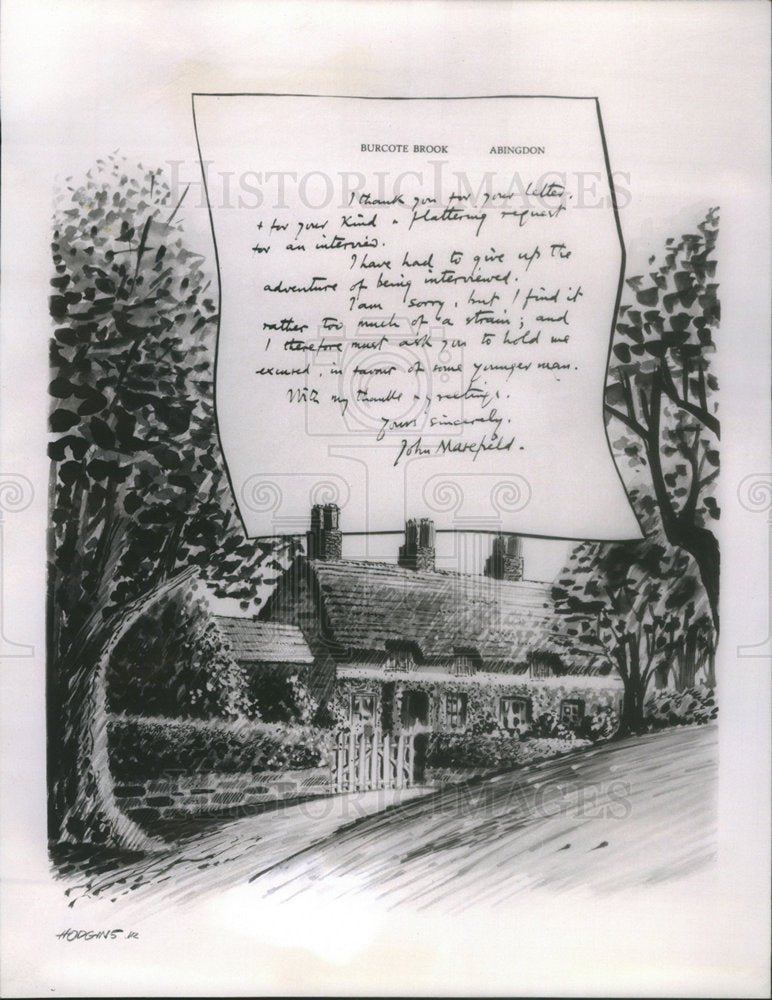 BURCOTE BROOK ABINGDON
I thank you for your letter,
+ for your kind & flattering request
for an interview.
I have had to give up the
adventure of being interviewed.
I am sorry, but I find it
rather too much of a strain; and
I therefore must ask you to hold me
excused, in favour of some younger man.
With my thanks & greetings.
Yours sincerely,
John Masefield.
HISTORIC IMAGES
HISTORIC IMAGES
HODGINS